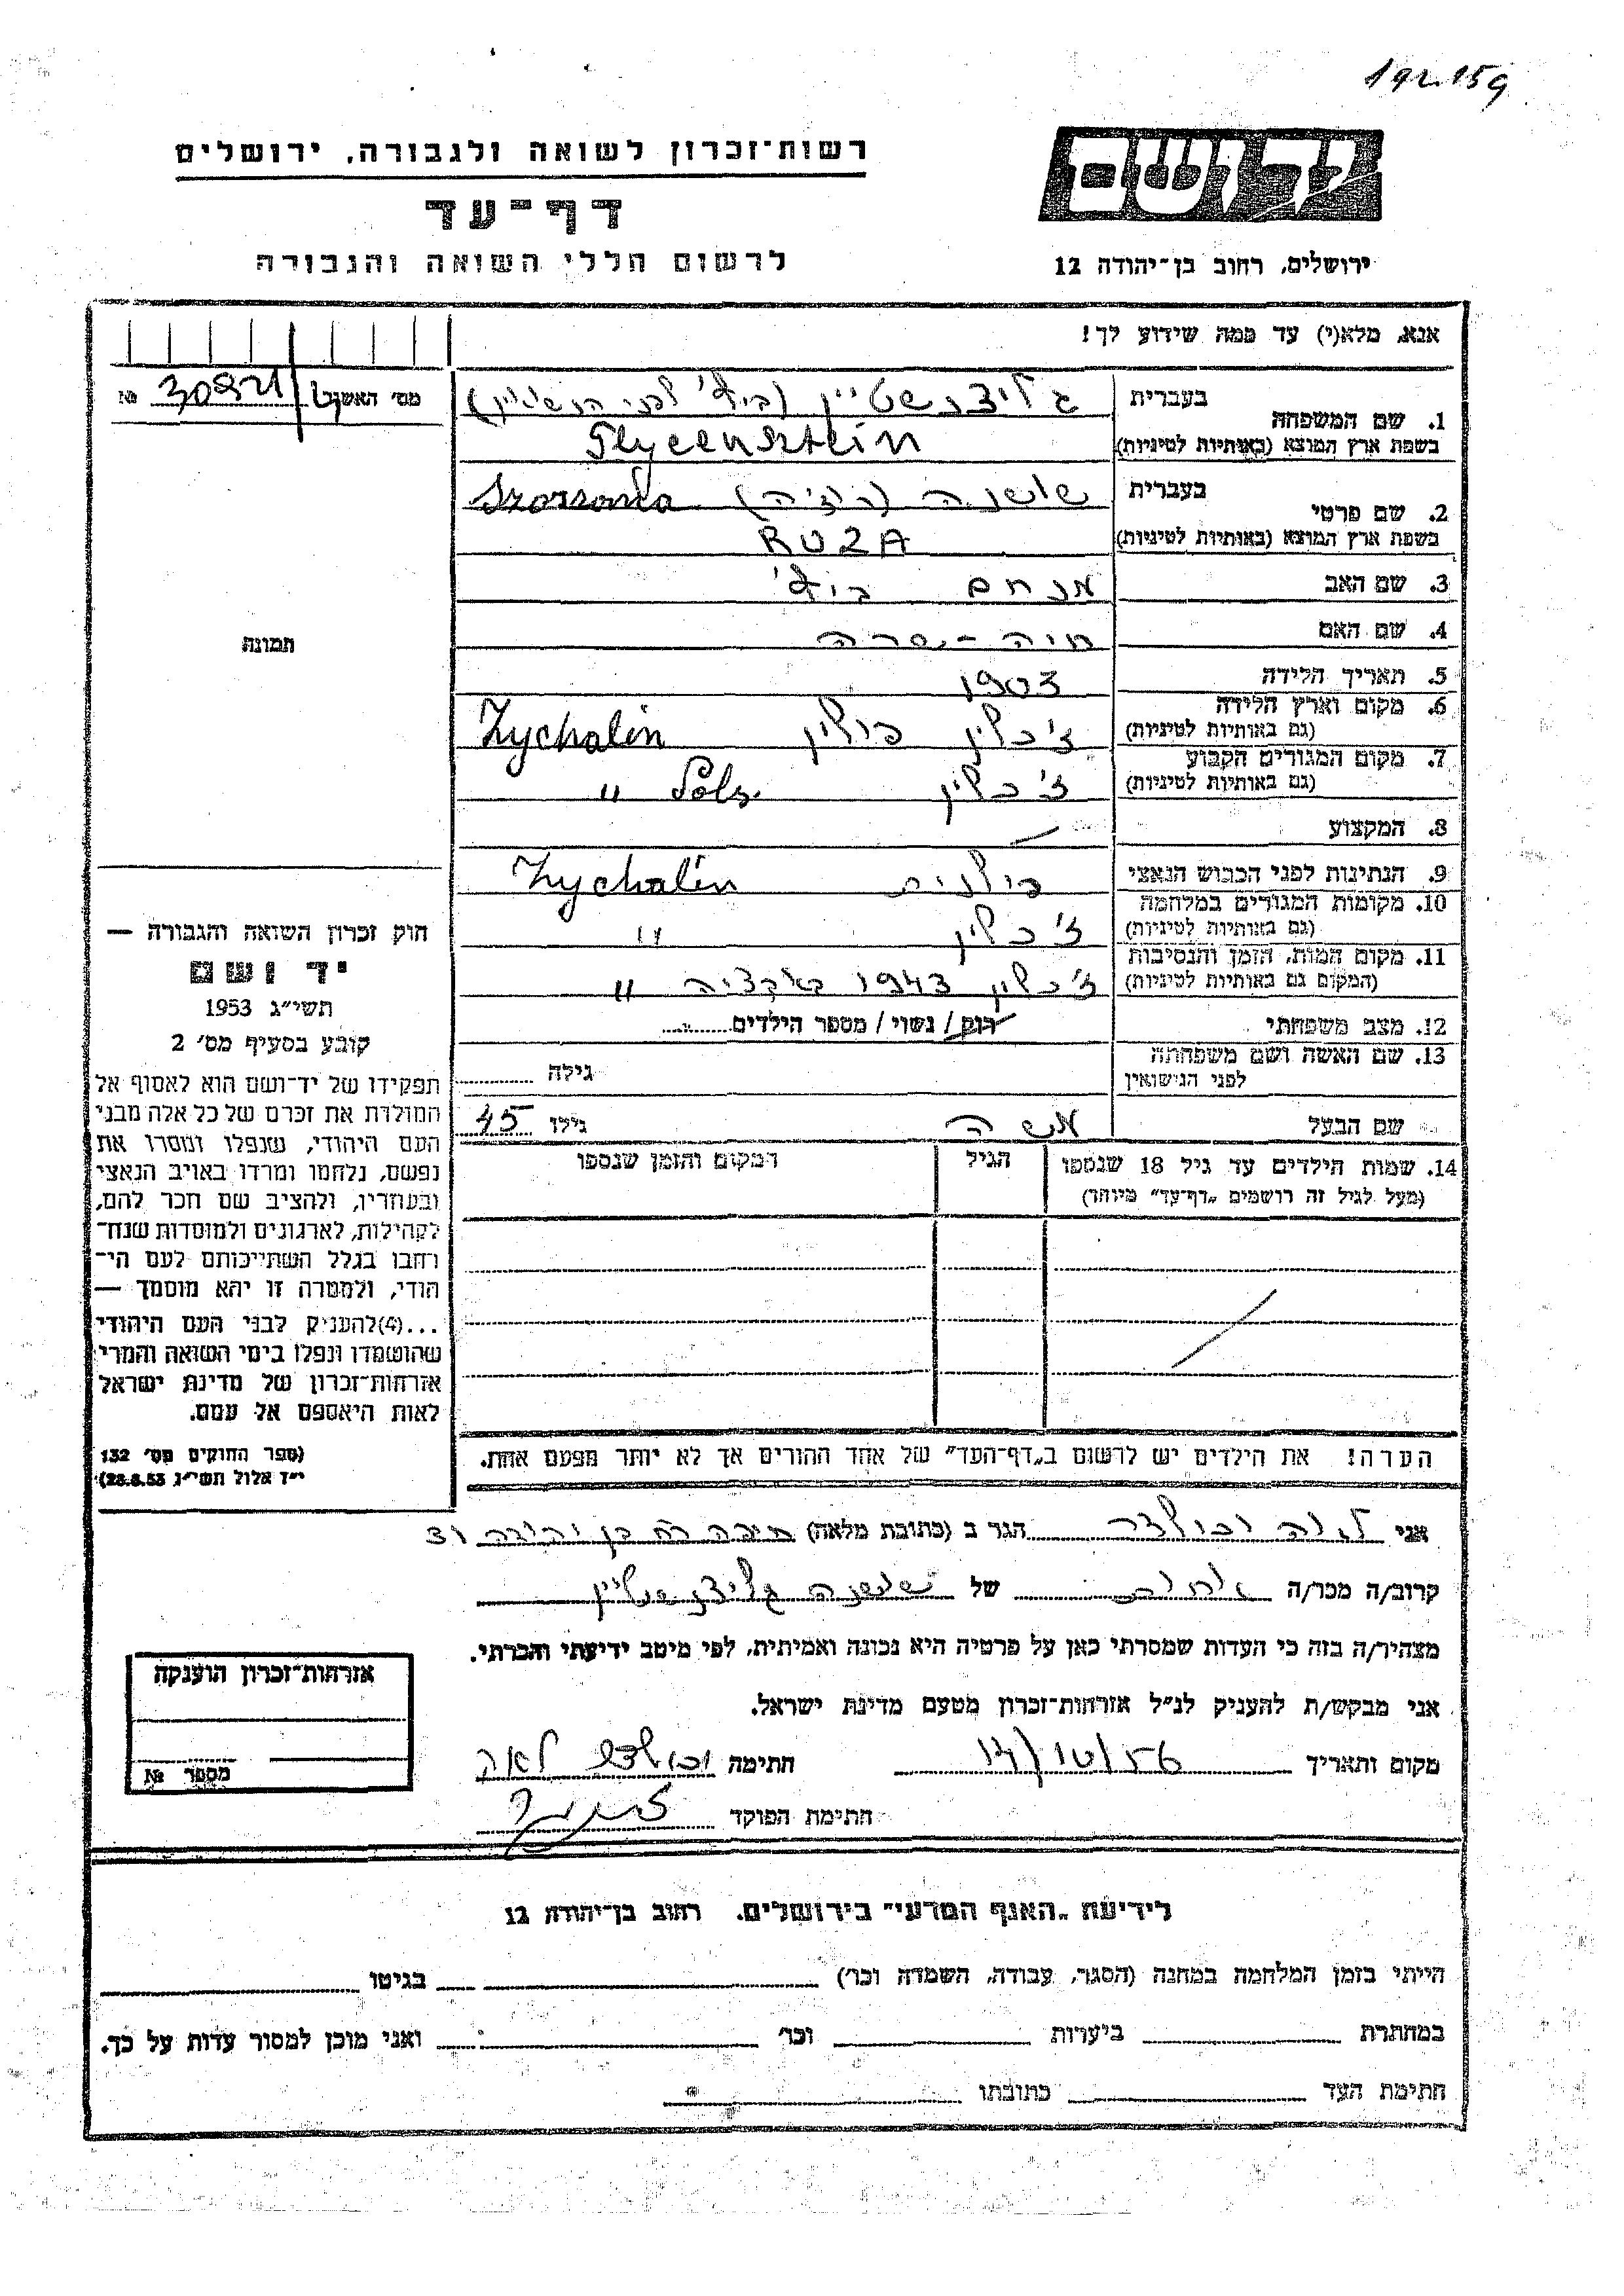 192.159
רשות־זכרון לשואה ולגבורה, ירושלים
דף־עד
לרשום חללי השואה והגבורה
יד ושם
ירושלים, רחוב בן־יהודה 12
אנא, מלא(י) עד כמה שידוע לך!
מס׳ האשנב № 30921
1. שם המשפחה בעברית גליצנשטיין (ביז׳ לפני הנשואין)
בשפת ארץ המוצא (באותיות לטיניות) Glycensztein
2. שם פרטי בעברית שושנה (רוזיה) Szoszana
בשפת ארץ המוצא (באותיות לטיניות) RUZA
3. שם האב מנחם
4. שם האם חיה - שרה
5. תאריך הלידה 1903
6. מקום וארץ הלידה (גם באותיות לטיניות) ז׳כלין פולין Zychalin
7. מקום המגורים הקבוע (גם באותיות לטיניות) ז׳כלין Pols. "
8. המקצוע —
9. הנתינות לפני הכבוש הנאצי פולנית Zychalin
10. מקומות המגורים במלחמה (גם באותיות לטיניות) ז׳כלין "
11. מקום המות, הזמן והנסיבות (המקום גם באותיות לטיניות) ז׳כלין 1943 באקציה "
12. מצב משפחתי רווק / נשוי / מספר הילדים
13. שם האשה ושם משפחתה לפני הנישואין גילה
שם הבעל משה גילו 45
14. שמות הילדים עד גיל 18 שנספו הגיל המקום והזמן שנספו
(מעל לגיל זה רושמים „דף־עד” מיוחד)
הערה! את הילדים יש לרשום ב„דף־העד” של אחד ההורים אך לא יותר מפעם אחת.
תמונה
חוק זכרון השואה והגבורה —
יד ושם
תשי״ג 1953
קובע בסעיף מס׳ 2
תפקידו של יד־ושם הוא לאסוף אל
המולדת את זכרם של כל אלה מבני
העם היהודי, שנפלו ומסרו את
נפשם, נלחמו ומרדו באויב הנאצי
ובעוזריו, ולהציב שם וזכר להם,
לקהילות, לארגונים ולמוסדות שנח־
רבו בגלל השתייכותם לעם הי־
הודי, ולמטרה זו יהא מוסמך —
...(4)להעניק לבני העם היהודי
שהושמדו ונפלו בימי השואה והמרי
אזרחות־זכרון של מדינת ישראל
לאות היאספם אל עמם.
(ספר החוקים מס׳ 132
י״ז אלול תשי״ג 28.8.53)
אני לאה הגר ב (כתובת מלאה) חיפה רח בן יהודה 31
קרוב/ה מכר/ה של שושנה גליצנשטיין
מצהיר/ה בזה כי העדות שמסרתי כאן על פרטיה היא נכונה ואמיתית, לפי מיטב ידיעתי והכרתי.
אני מבקש/ת להעניק לנ״ל אזרחות־זכרון מטעם מדינת ישראל.
מקום ותאריך 14/10/56 חתימה לאה
חתימת הפוקד
אזרחות־זכרון הוענקה
מספר №
לידיעת „האגף המדעי” בירושלים, רחוב בן־יהודה 12
הייתי בזמן המלחמה במחנה (הסגר, עבודה, השמדה וכו׳) בגיטו
במחתרת ביערות וכו׳ ואני מוכן למסור עדות על כך.
חתימת העד כתובתו